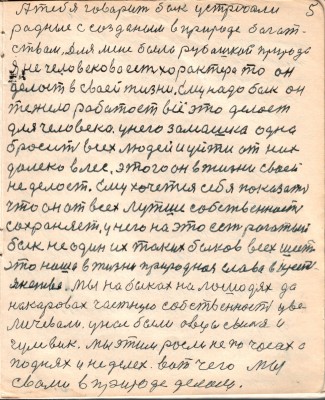 5
А тебя говарит бык устроали
радные с созданым в природе богат-
ствам. Для мне была рубашкой природа
я не человекова ест характера то он
делоет в сваей жизни. Ему надо бык он
тежело работает всё это делоет
для человека. у него замашка одна
бросит всех людей и уйти от них
далеко в лес. этого он в жизни сваей
не делоет. Ему хочетия себя показать
что он от всех лутше собственност
сохраняет, у него на это ест рогатый
бык не один их таких быков всех
это наша в жизни природная слава в
мы на быках на лошодях да
на коровах частную собственност уве
личевали. у нас были овцы свиня и
гулився. мы этим росли не по часах а
по днях и неделех. вот чего мы
свами в природе делаем.